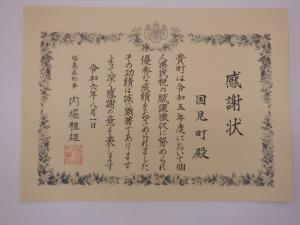 感謝状
国見町殿
貴町は令和五年度において個
人県民税の賦課徴収に努められ
優秀な成績をおさめられました
その功績は誠に顕著であります
よって深く感謝の意を表します
令和六年八月一日
福島県知事 内堀雅雄